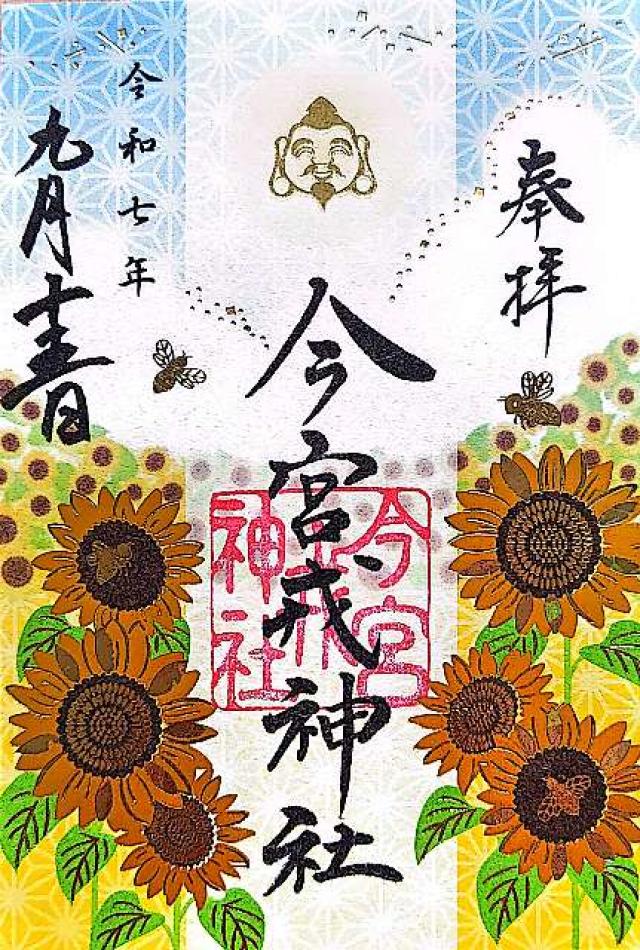 奉拝
今宮戎神社
令和七年
九月十五日
今宮
神社